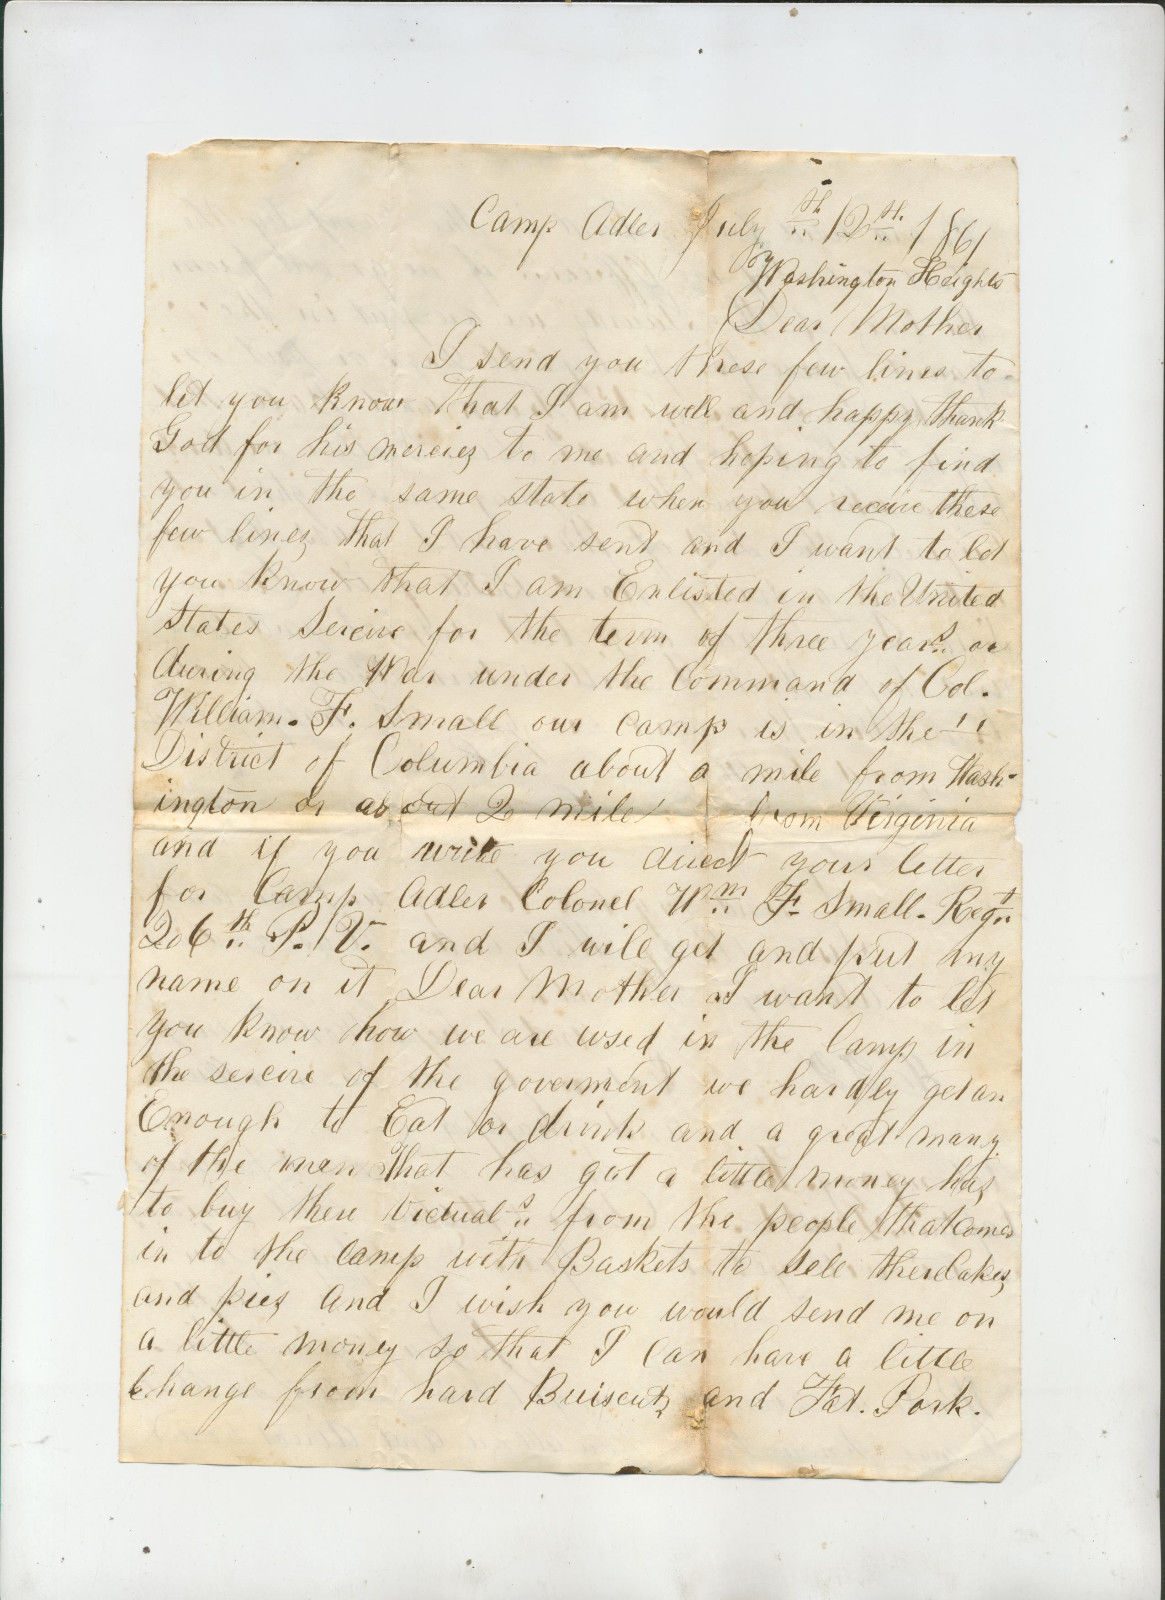 Camp Adler July th 12th 1861
Washington Heights
Dear Mother
I send you these few lines to
let you know that I am well and happy thank
God for his mercies to me and hoping to find
you in the same state when you receive these
few lines that I have sent and I want to let
you know that I am Enlisted in the United
States Sercire for the term of three years or
during the War under the Command of Col.
William. F. Small our camp is in the
District of Columbia about a mile from Wash-
ington or about 2 mile from Virginia
and if you write you direct your letter
for Camp Adler Colonel Wm F. Small. Regt
26th P. V. and I will get and put my
name on it Dear Mother I want to let
you know how we are used in the Camp in
the sercire of the goverment we hardly get an
Enough to Eat or drink and a great many
of the men that has got a little money has
to buy there victuals from the people that comes
in to the camp with Baskets to sell there Cakes
and pies and I wish you would send me on
a little money so that I can have a little
change from hard Buiscuts and Fat. Pork.